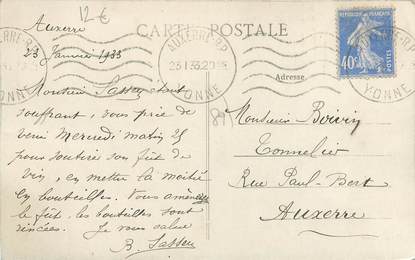 12 €
CARTE POSTALE
Auxerre
23 Janvier 1933
Monsieur Sassey étant
souffrant, vous prie de
venir Mercredi matin 25
pour soutirer son fût de
vin, en mettre la moitié
en bouteilles. Vous
le fût. les bouteilles sont
rincées. Je vous salue
B. Sassey
AUXERRE-RP
23 I 33. 20
YONNE
YONNE
YONNE
REPUBLIQUE FRANÇAISE
40c
POSTES
Adresse
Monsieur Boivin
Tonnelier
Rue Paul-Bert
Auxerre